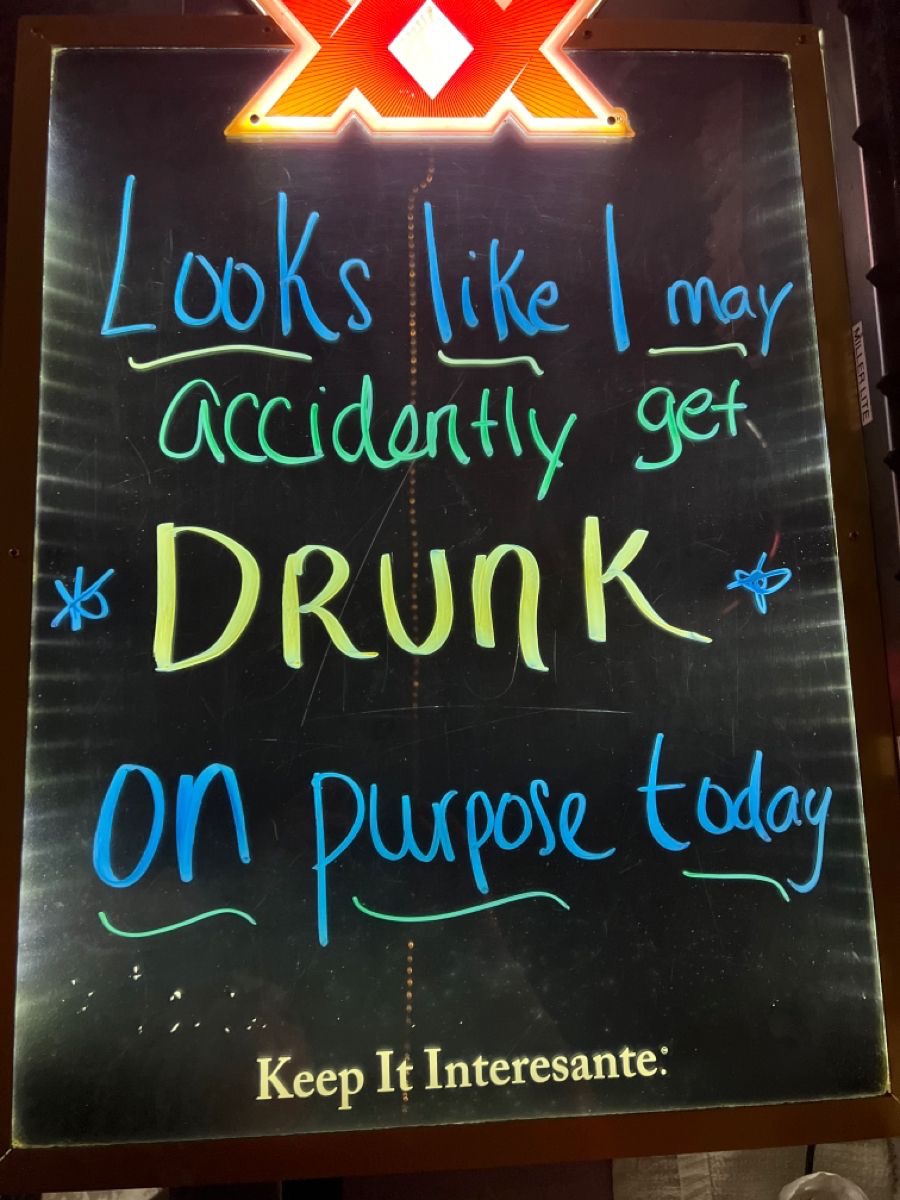 XX
Looks like I may
accidently get
* DRUNK *
on purpose today
Keep It Interesante.
MILLER LITE